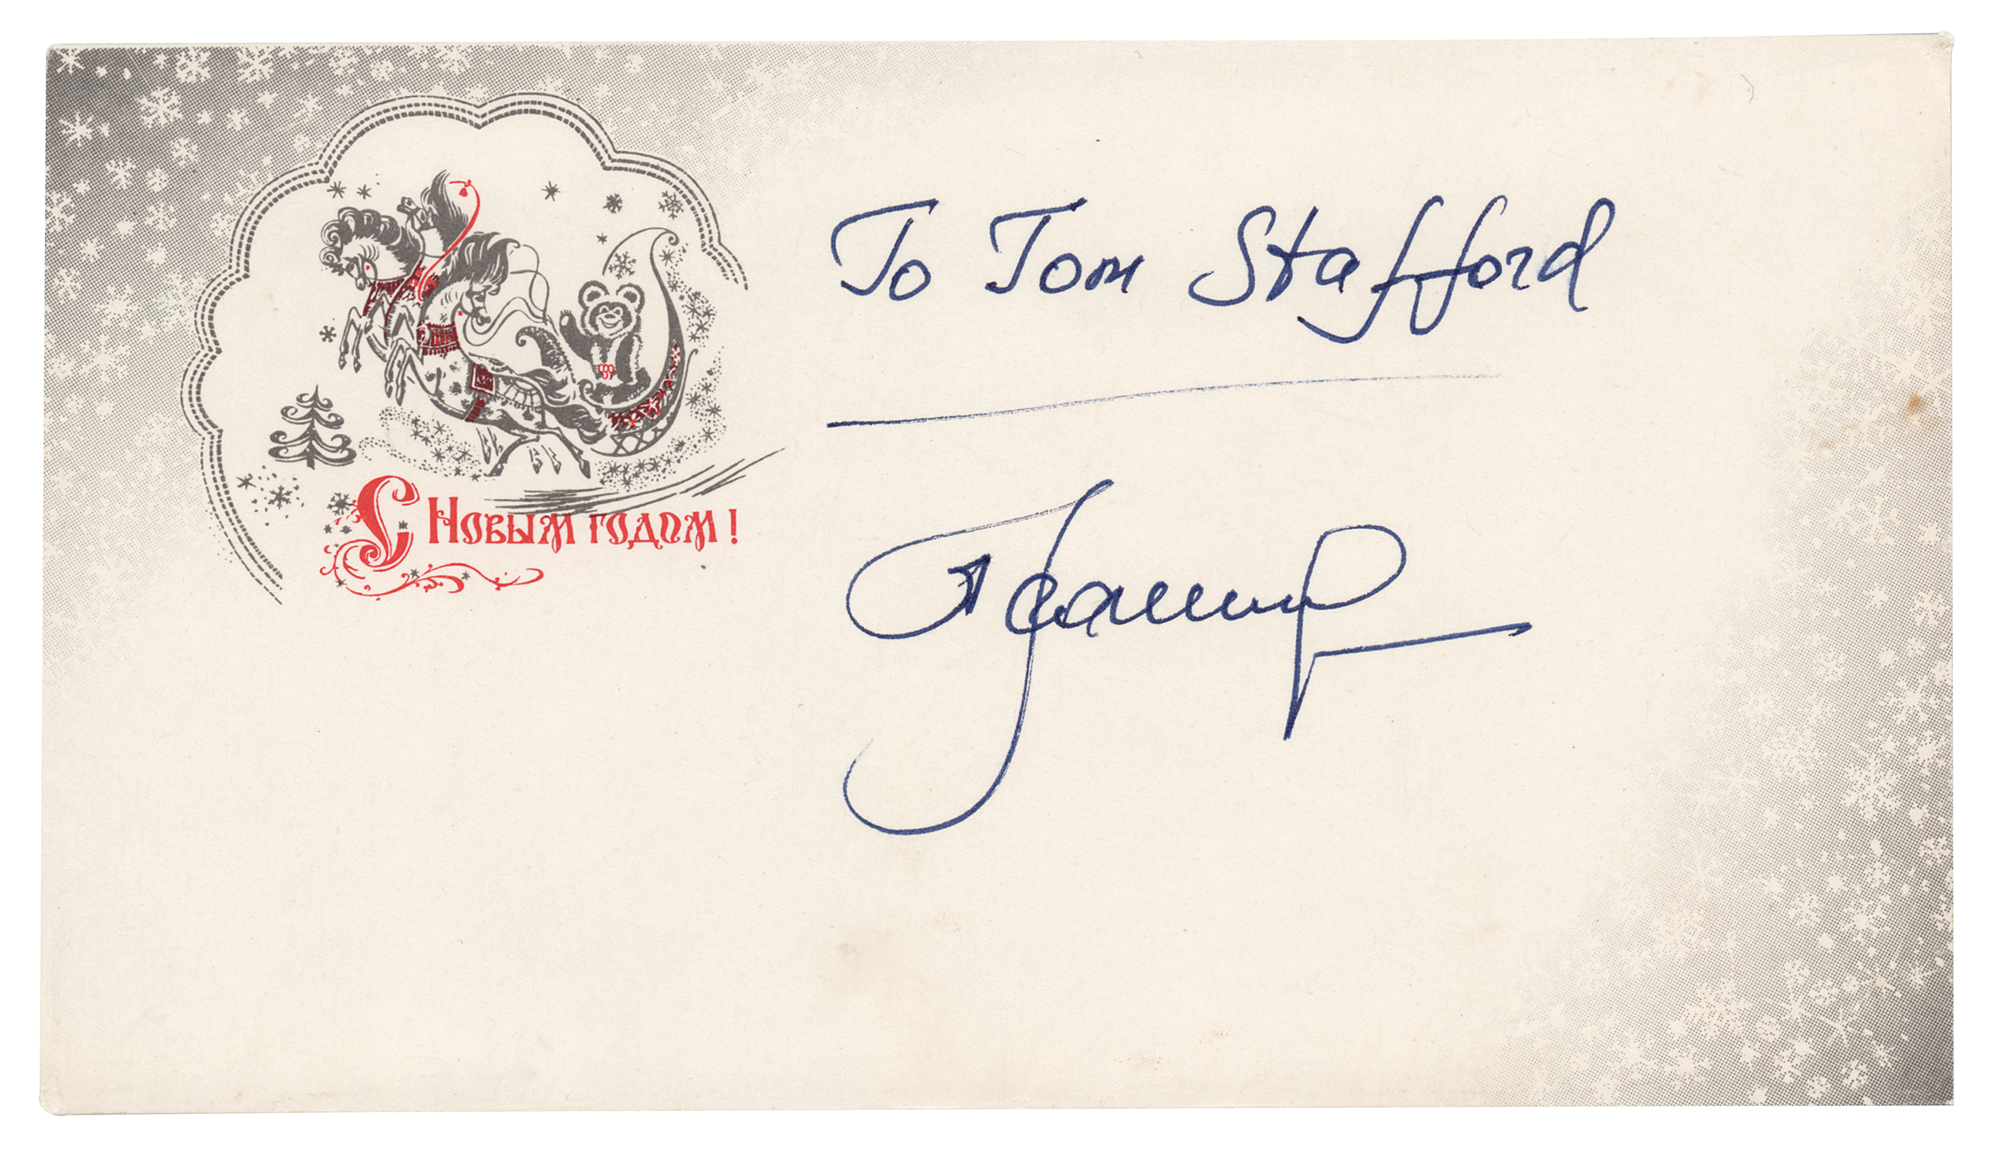 С Новым годом!
To Tom Stafford